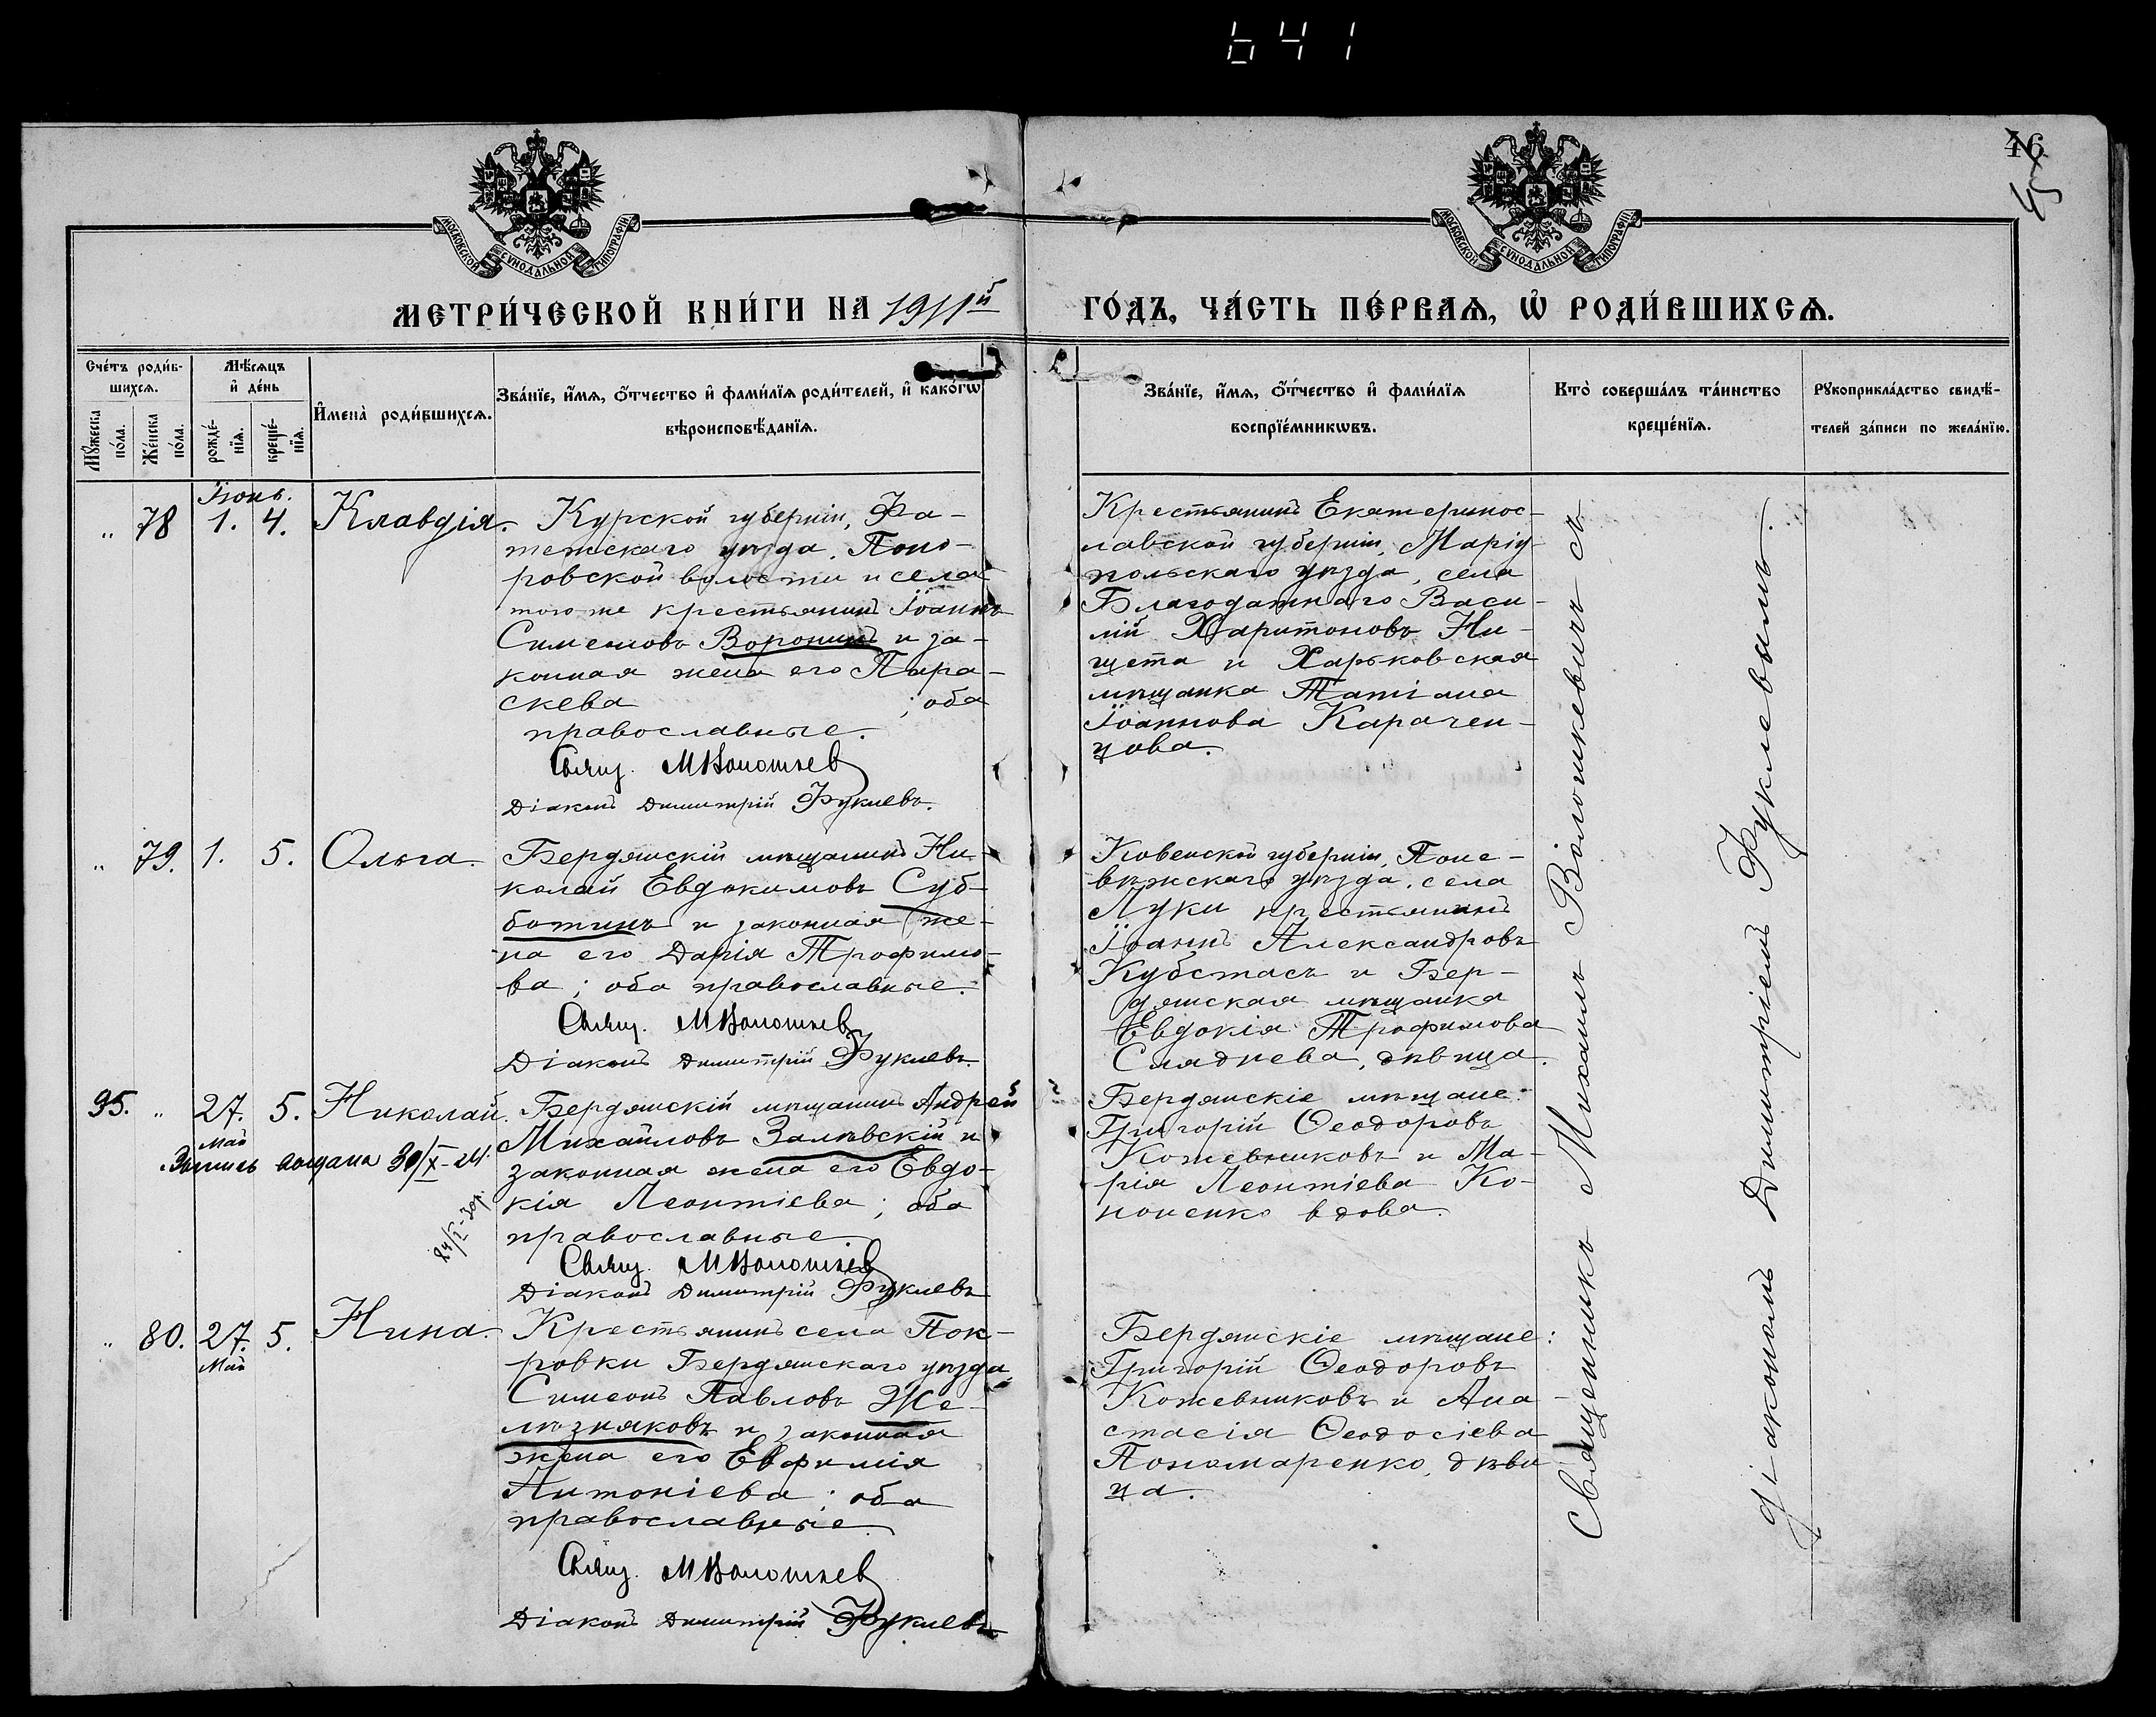 641
МОСКОВСКОЙ СѴНОДАЛЬНОЙ ТИПОГРАФІИ
МОСКОВСКОЙ СѴНОДАЛЬНОЙ ТИПОГРАФІИ
46
45
МЕТРИ́ЧЕСКОЙ КНИ́ГИ НА 1911й
ГО́ДЪ, ЧА́СТЬ ПЕ́РВАѦ, Ѡ҆ РОДИ́ВШИХСѦ.
Сче́тъ роди́в-
шихсѧ.
Мꙋ́жеска по́ла.
Же́нска по́ла.
Мѣ́сѧцъ
и҆ де́нь
рожде́-
нїѧ.
креще́-
нїѧ.
И҆мена̀ роди́вшихсѧ.
Зва́нїе, и҆́мѧ, ѻ҆́тчество и҆ фами́лїѧ роди́телей, и҆ како́гѡ
вѣроисповѣ́данїѧ.
Зва́нїе, и҆́мѧ, ѻ҆́тчество и҆ фами́лїѧ
воспрїе́мникѡвъ.
Кто̀ соверша́лъ та́инство
креще́нїѧ.
Рꙋкоприкла́дство свидѣ́-
телей за́писи по жела́нїю.
Іюнь.
„ 78 1. 4. Клавдія.
Курской губерніи, Фа-
тежскаго уѣзда, Поны-
ровской волости и села
того же крестьянинъ Іоаннъ
Симеоновъ Воронинъ и за-
конная жена его Пара-
скева ; оба
православные.
Свящ. М Волошкев
Діаконъ Димитрій Фуклевъ.
Крестьянинъ Екатеринос-
лавской губерніи, Маріу-
польскаго уѣзда, села
Благодатнаго Васи-
лій Харитоновъ Ни-
щета и Харьковская
мѣщанка Татіана
Іоаннова Карачен-
цова.
„ 79. 1. 5. Ольга.
Бердянскій мѣщанинъ Ни-
колай Евдокимовъ Суб-
ботинъ и законная же-
на его Дарія Трофимо-
ва; оба православные.
Свящ. М Волошкев
Діаконъ Димитрій Фуклевъ.
Ковенской губерніи, Поне-
вѣжскаго уѣзда, села
Луки крестьянинъ
Іоаннъ Александровъ
Кубстасъ и Бер-
дянская мѣщанка
Евдокія Трофимова
Сляднева, дѣвица.
95. „ 27. 5. Николай.
Май
Запись выдана 30/X-24.
24/I-30г.
Бердянскій мѣщанинъ Андрей
Михайловъ Залѣвскій и
законная жена его Евдо-
кія Леонтіева; оба
православные.
Свящ. М Волошкев
Діаконъ Димитрій Фуклевъ
Бердянскіе мѣщане:
Григорій Ѳеодоровъ
Кожевниковъ и Ма-
рія Леонтіева Ко-
ноненко вдова.
„ 80. 27. 5. Нина.
Май
Крестьянинъ села Пок-
ровки Бердянскаго уѣзда
Симеонъ Павловъ Же-
лѣзняковъ и законная
жена его Евфимія
Антоніева; оба
православные.
Свящ. М Волошкев
Діаконъ Димитрій Фуклевъ
Бердянскіе мѣщане:
Григорій Ѳеодоровъ
Кожевниковъ и Ана-
стасія Ѳеодосіева
Пономаренко, дѣви
ца.
Священникъ Михаилъ Волошкевичъ съ
діакономъ Димитріемъ Фуклевымъ.